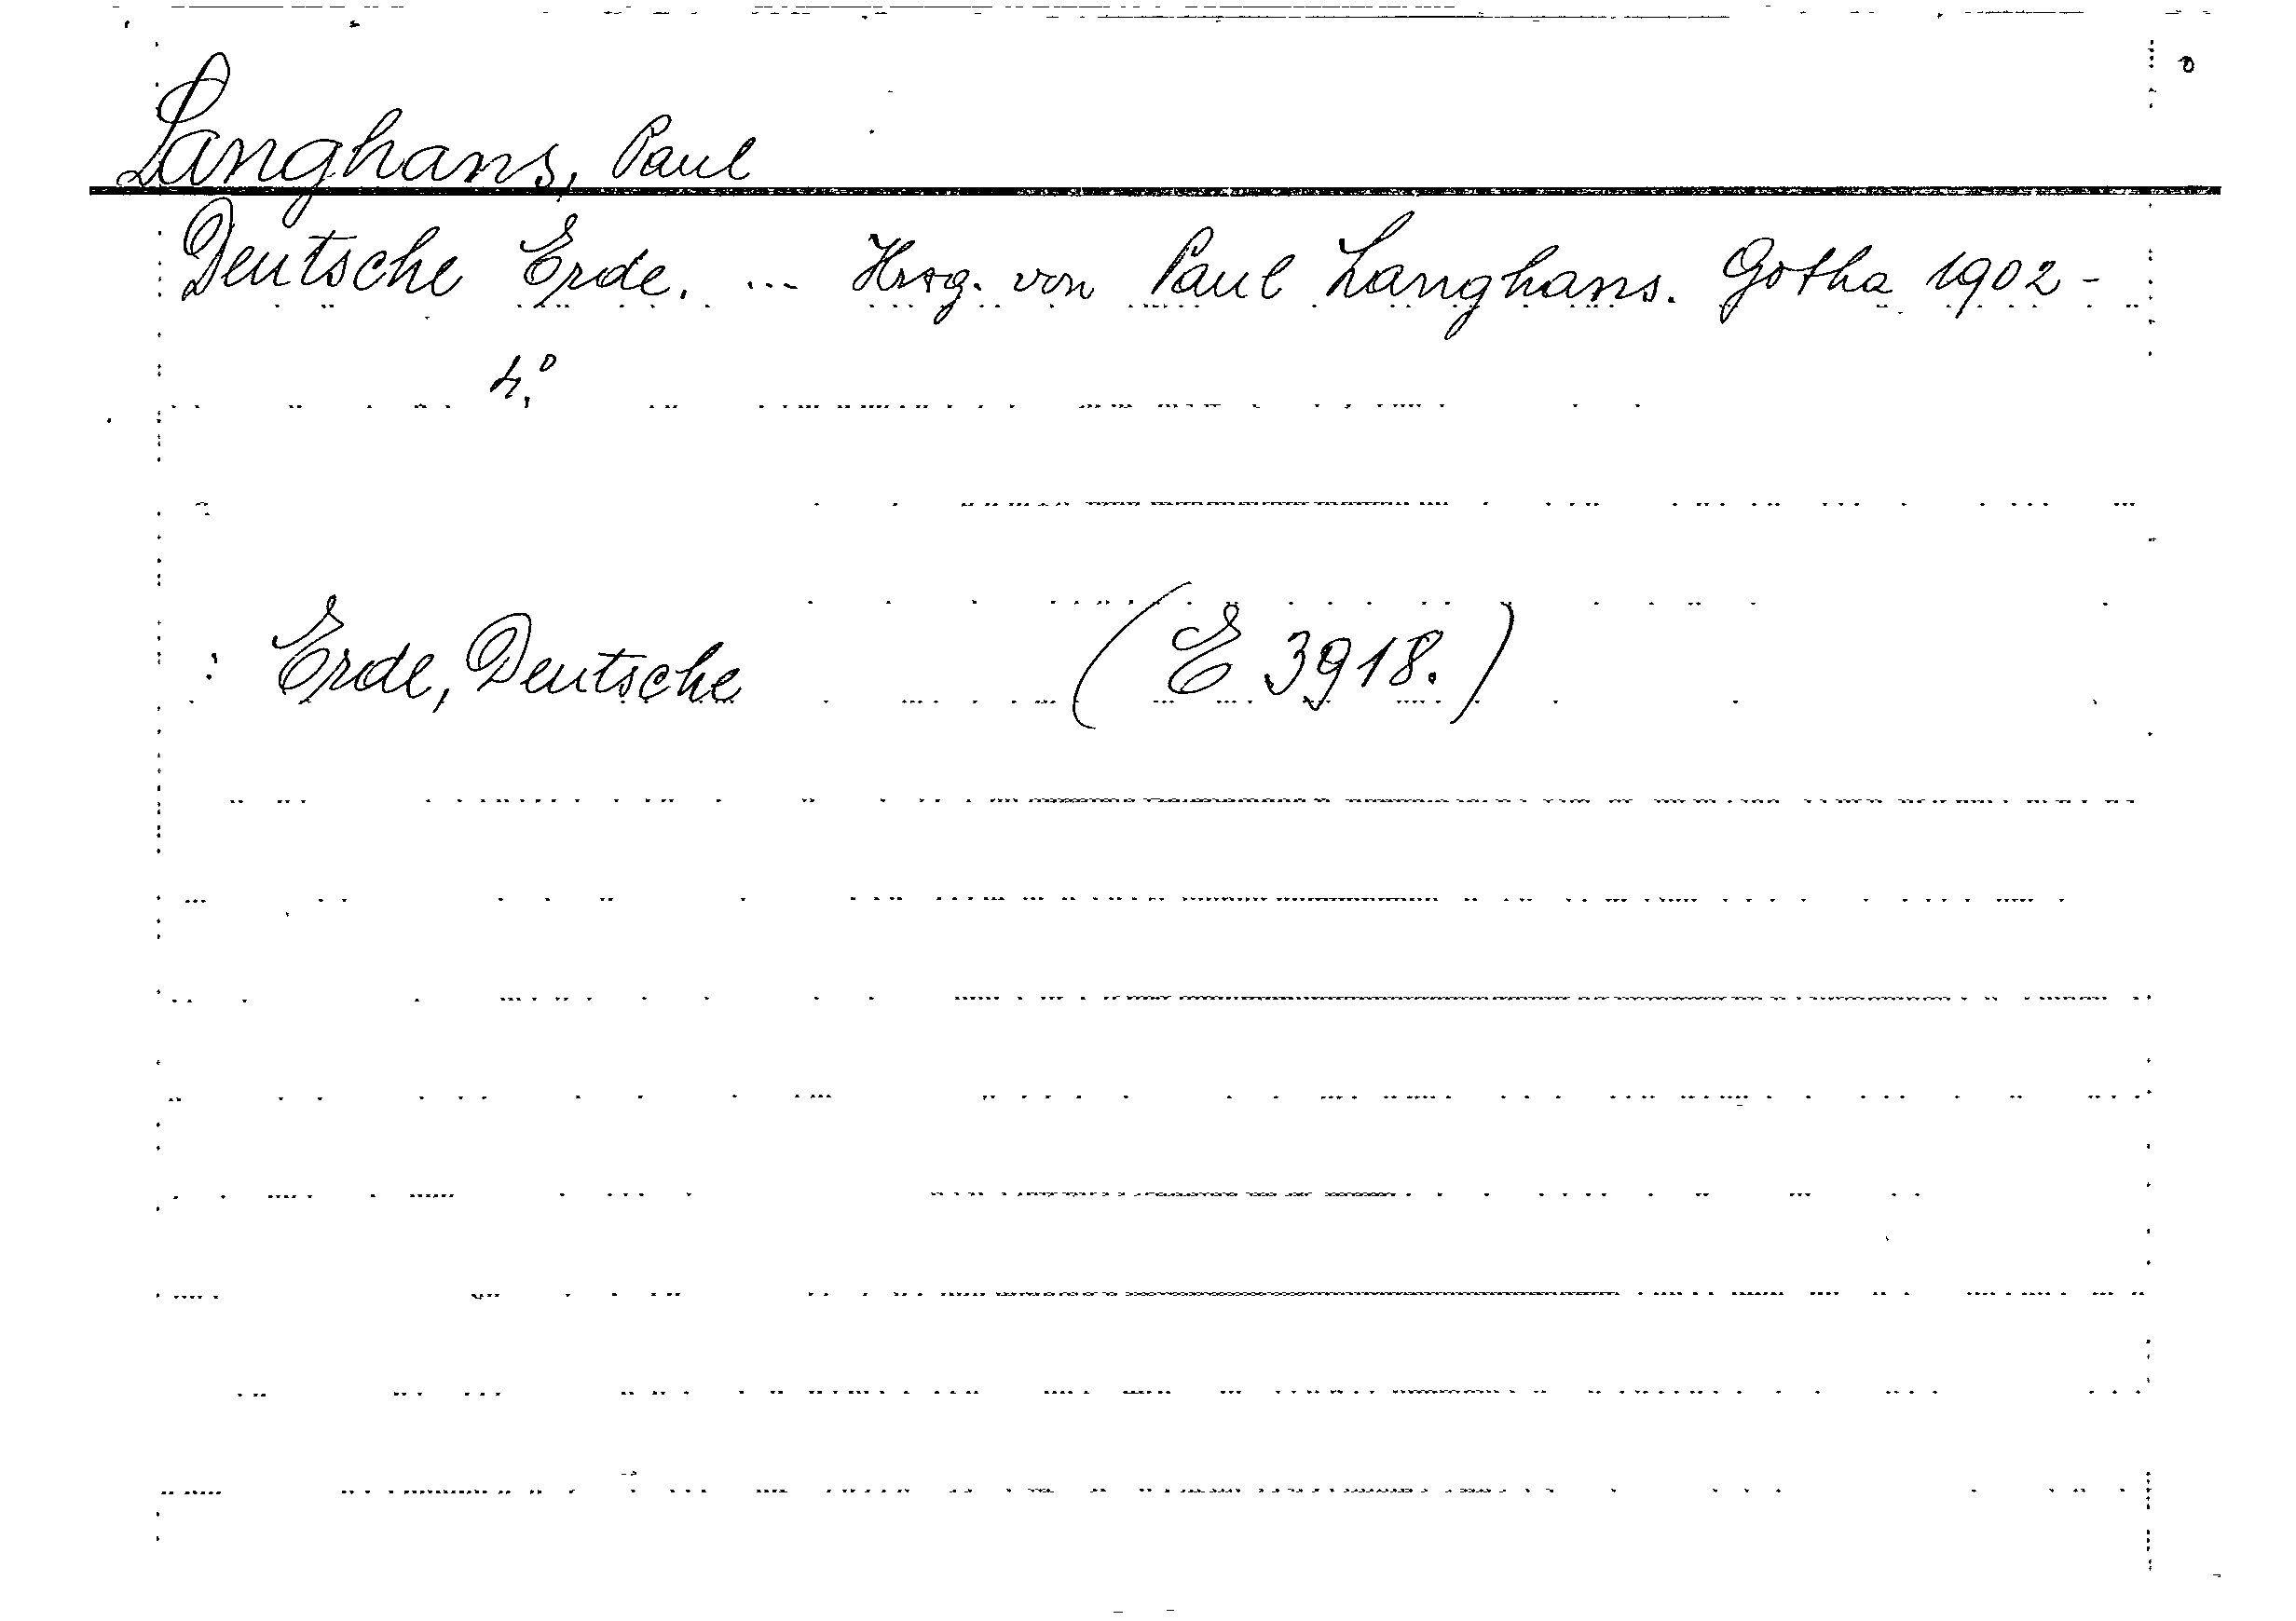 Langhans, Paul
Deutsche Erde. ... Hrsg. von Paul Langhans. Gotha 1902-
4.°
: Erde, Deutsche (E 3918.)